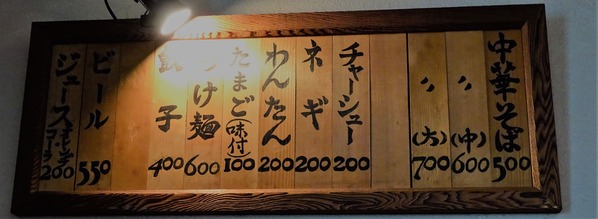 中華そば 500
〃 (中) 600
〃 (大) 700
チャーシュー 200
ネギ 200
わんたん 200
たまご(味付) 100
つけ麺 600
餃子 400
ビール 550
ジュース コーラ 200